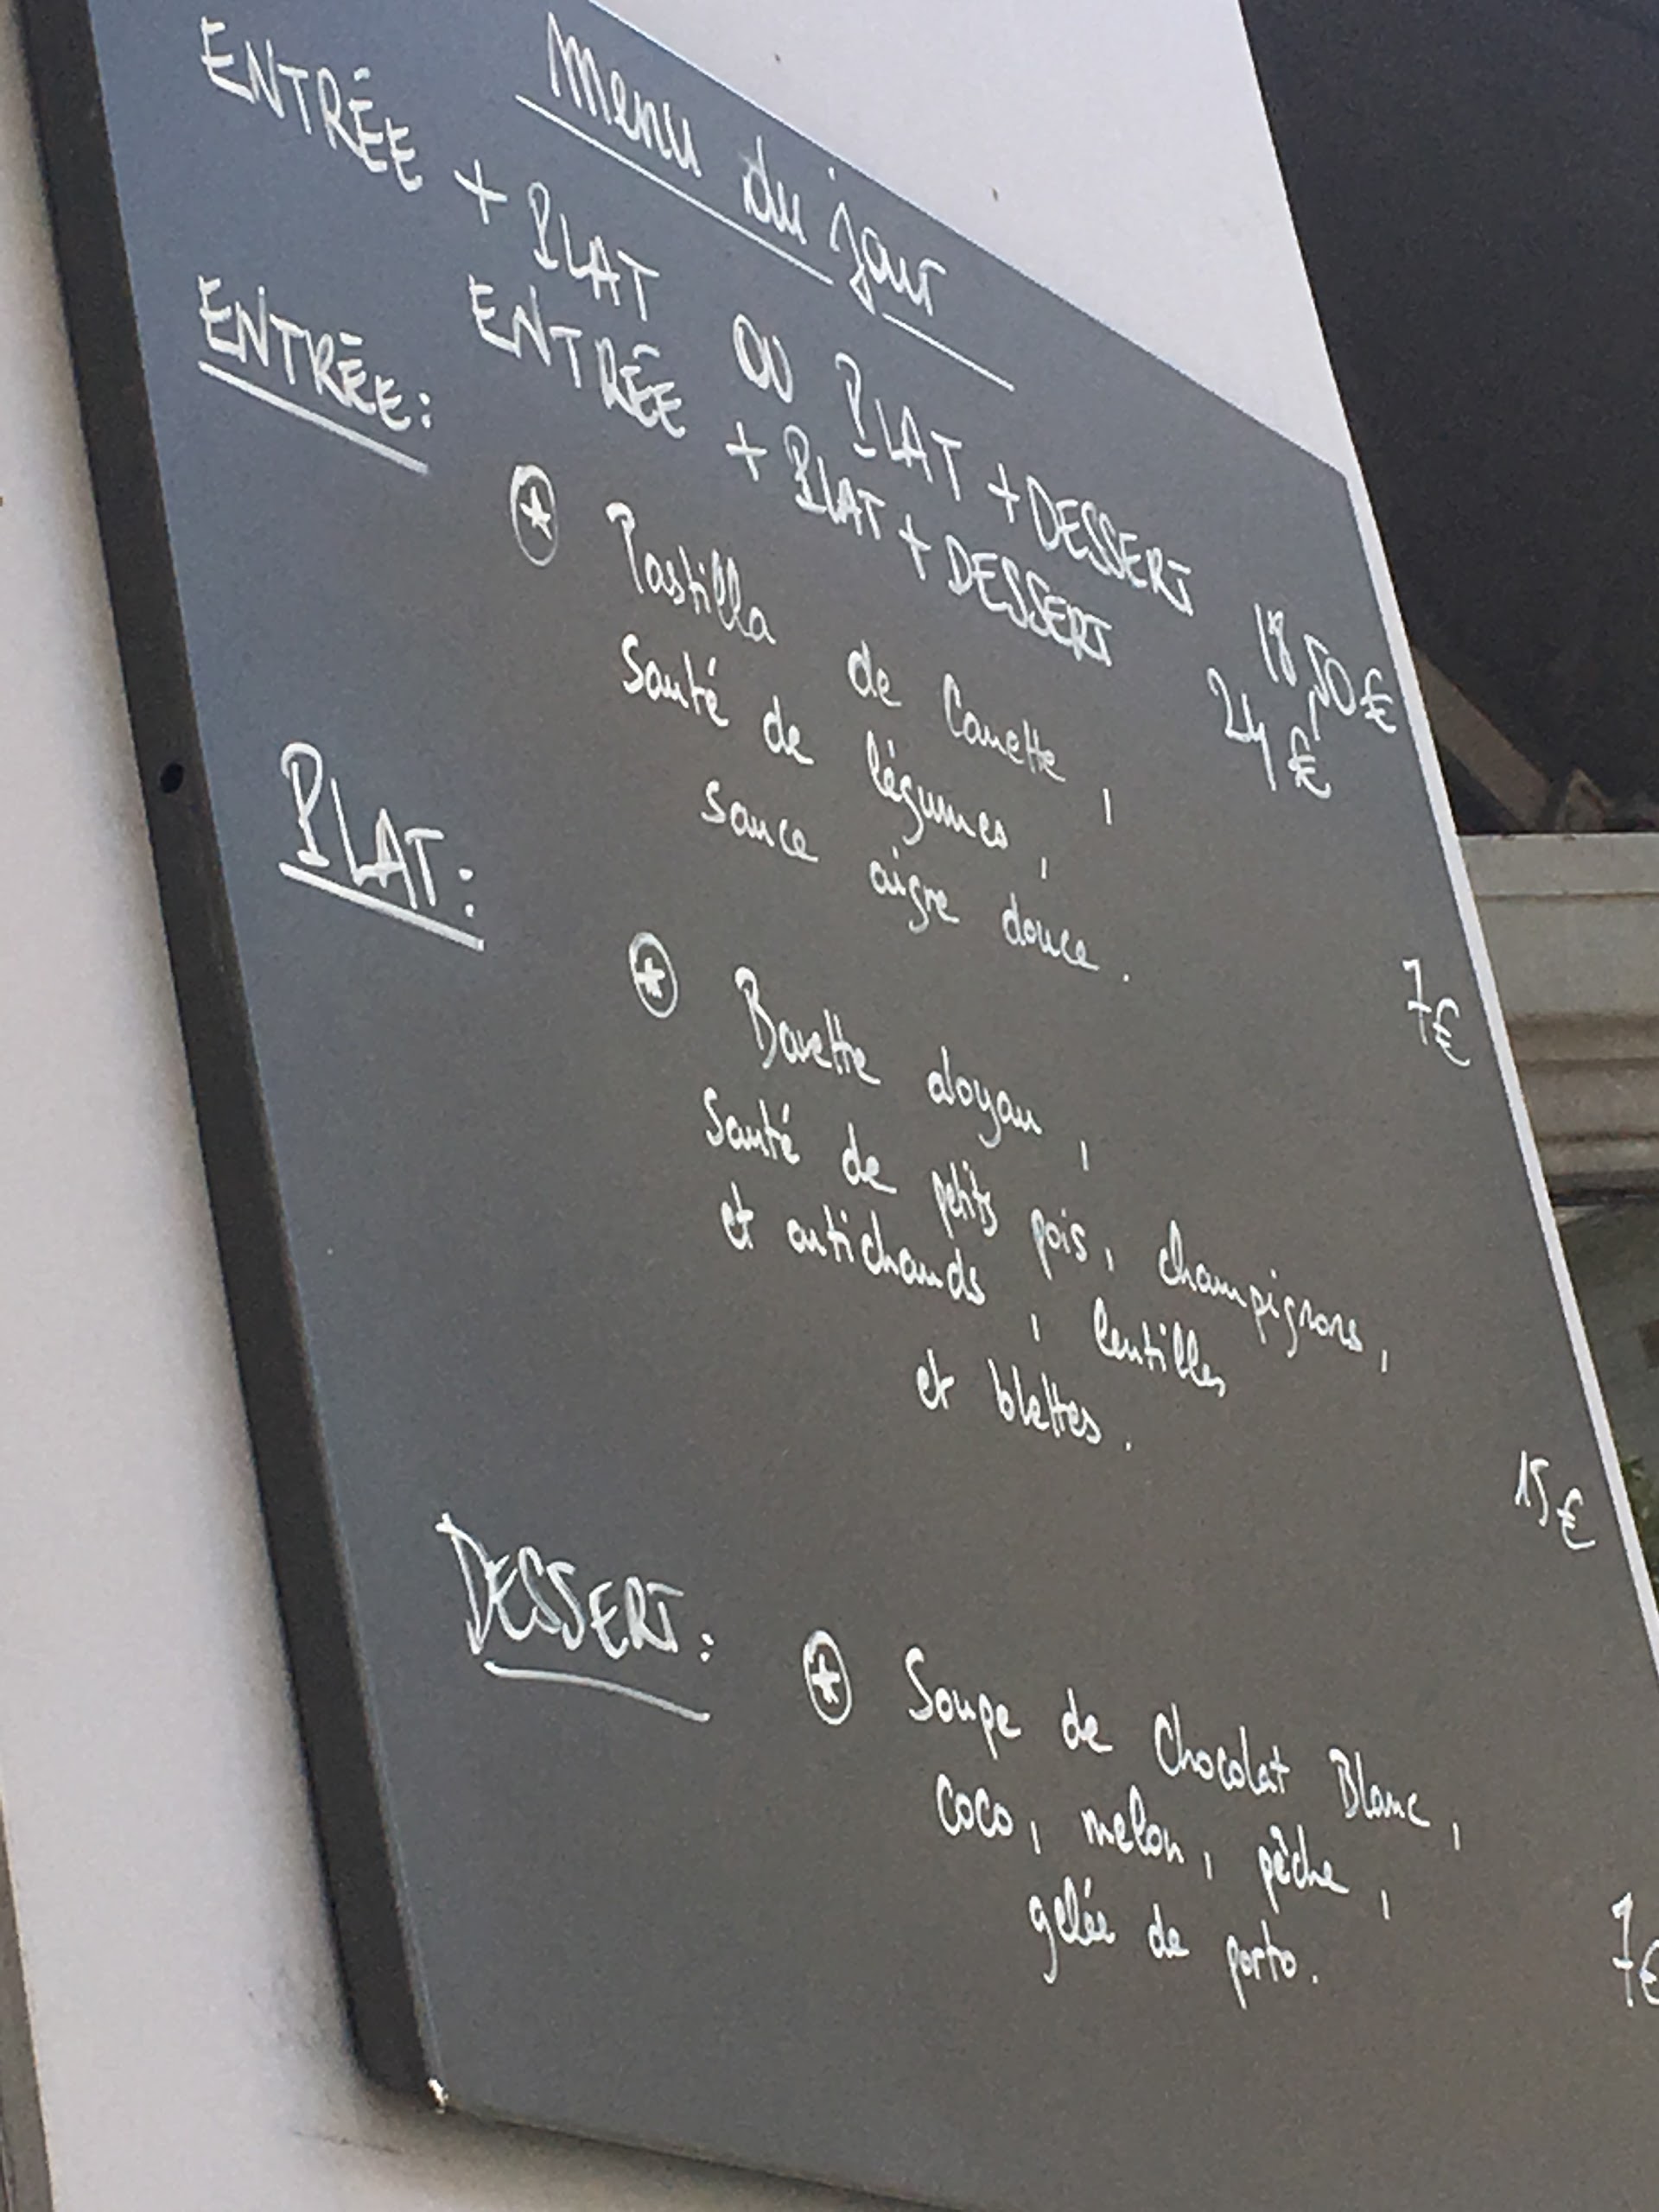 menu du jour
ENTRÉE + PLAT OU PLAT + DESSERT 18,50€
ENTRÉE + PLAT + DESSERT 24€
ENTRÉE:
Pastilla de Canette,
Sauté de légumes,
sauce aigre douce.
7€
PLAT:
Bavette aloyau,
Sauté de petits pois, champignons,
et artichauds, lentilles
et blettes.
15€
DESSERT:
Soupe de Chocolat Blanc,
coco, melon, pêche,
gelée de porto.
7€